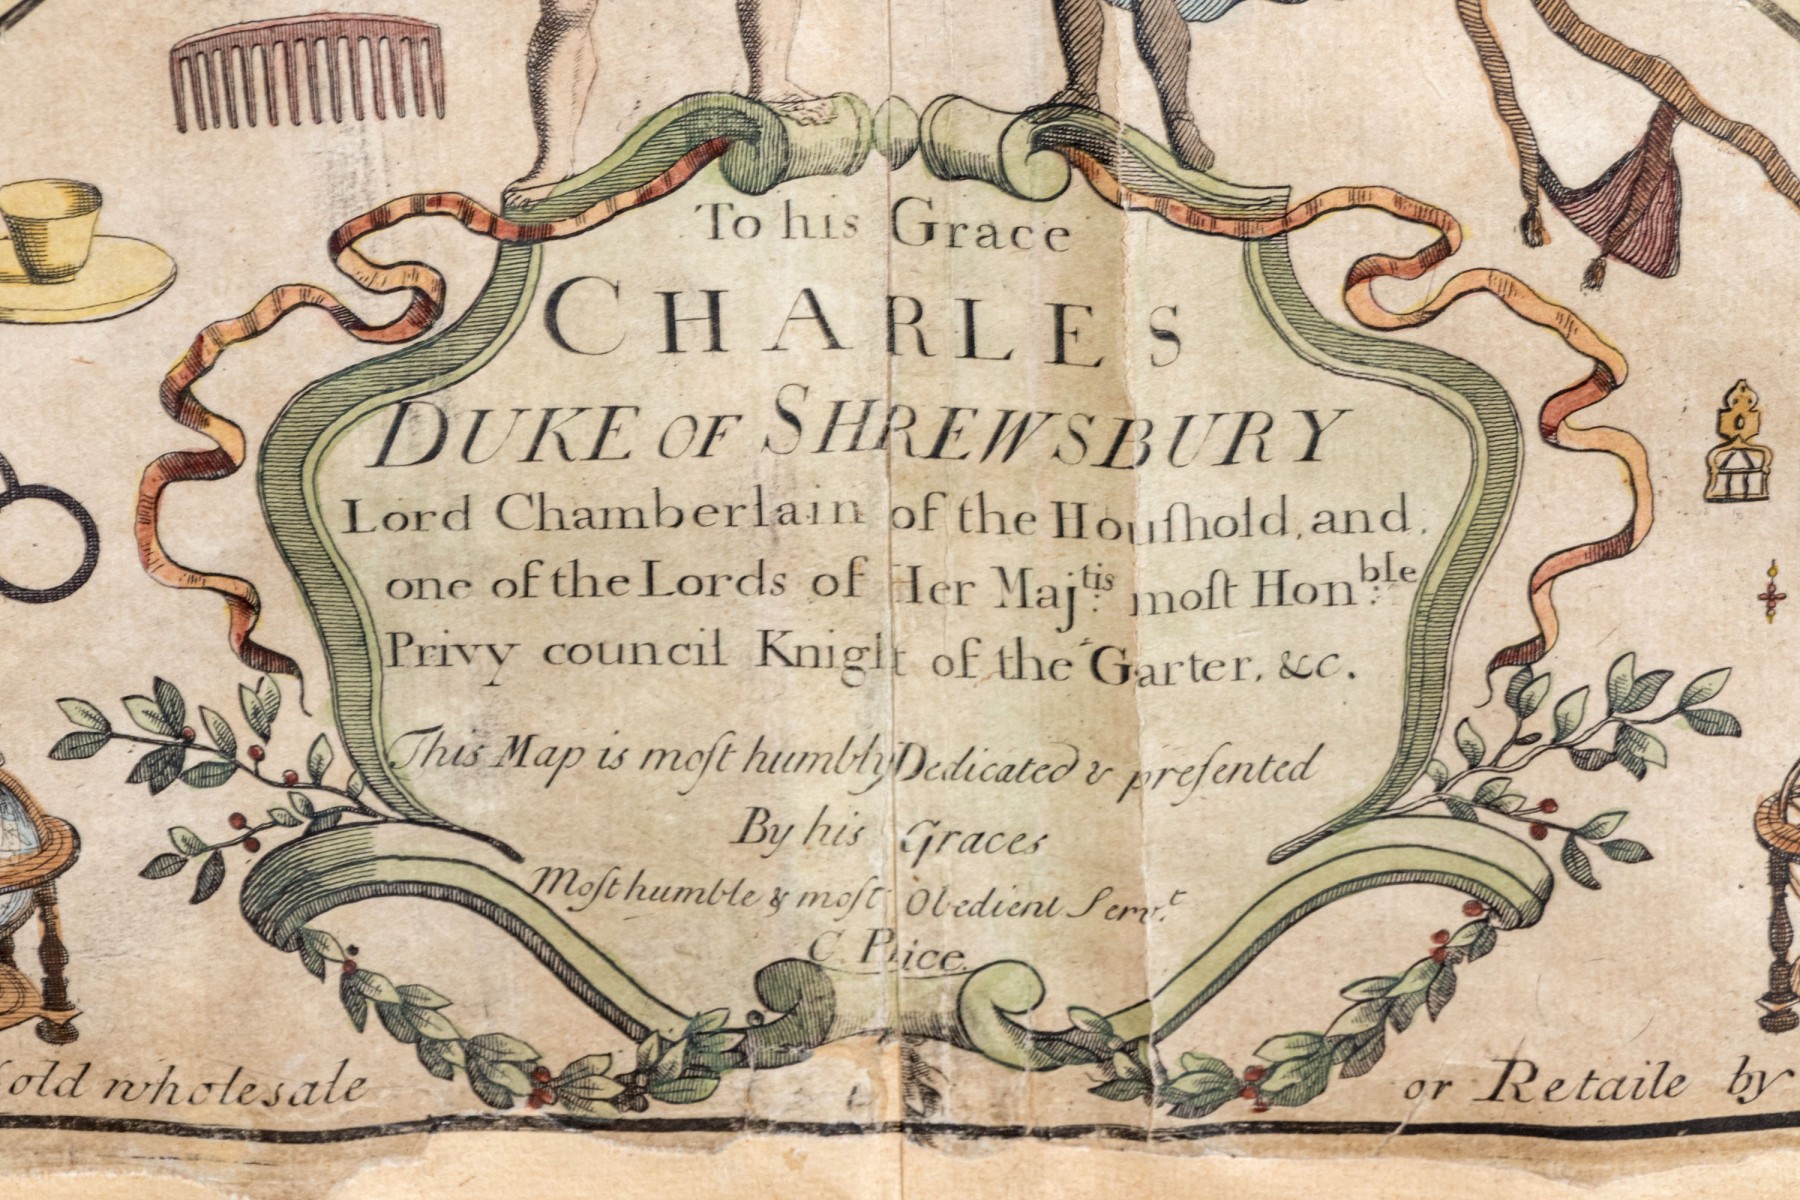 To his Grace
CHARLES
DUKE OF SHREWSBURY
Lord Chamberlain of the Houſhold, and
one of the Lords of Her Maj:tis moſt Hon:ble
Privy council Knight of the Garter, &c.
This Map is moſt humbly Dedicated & preſented
By his Graces
Moſt humble & moſt Obedient Serv.t
C. Price
ſold wholesale or Retaile by